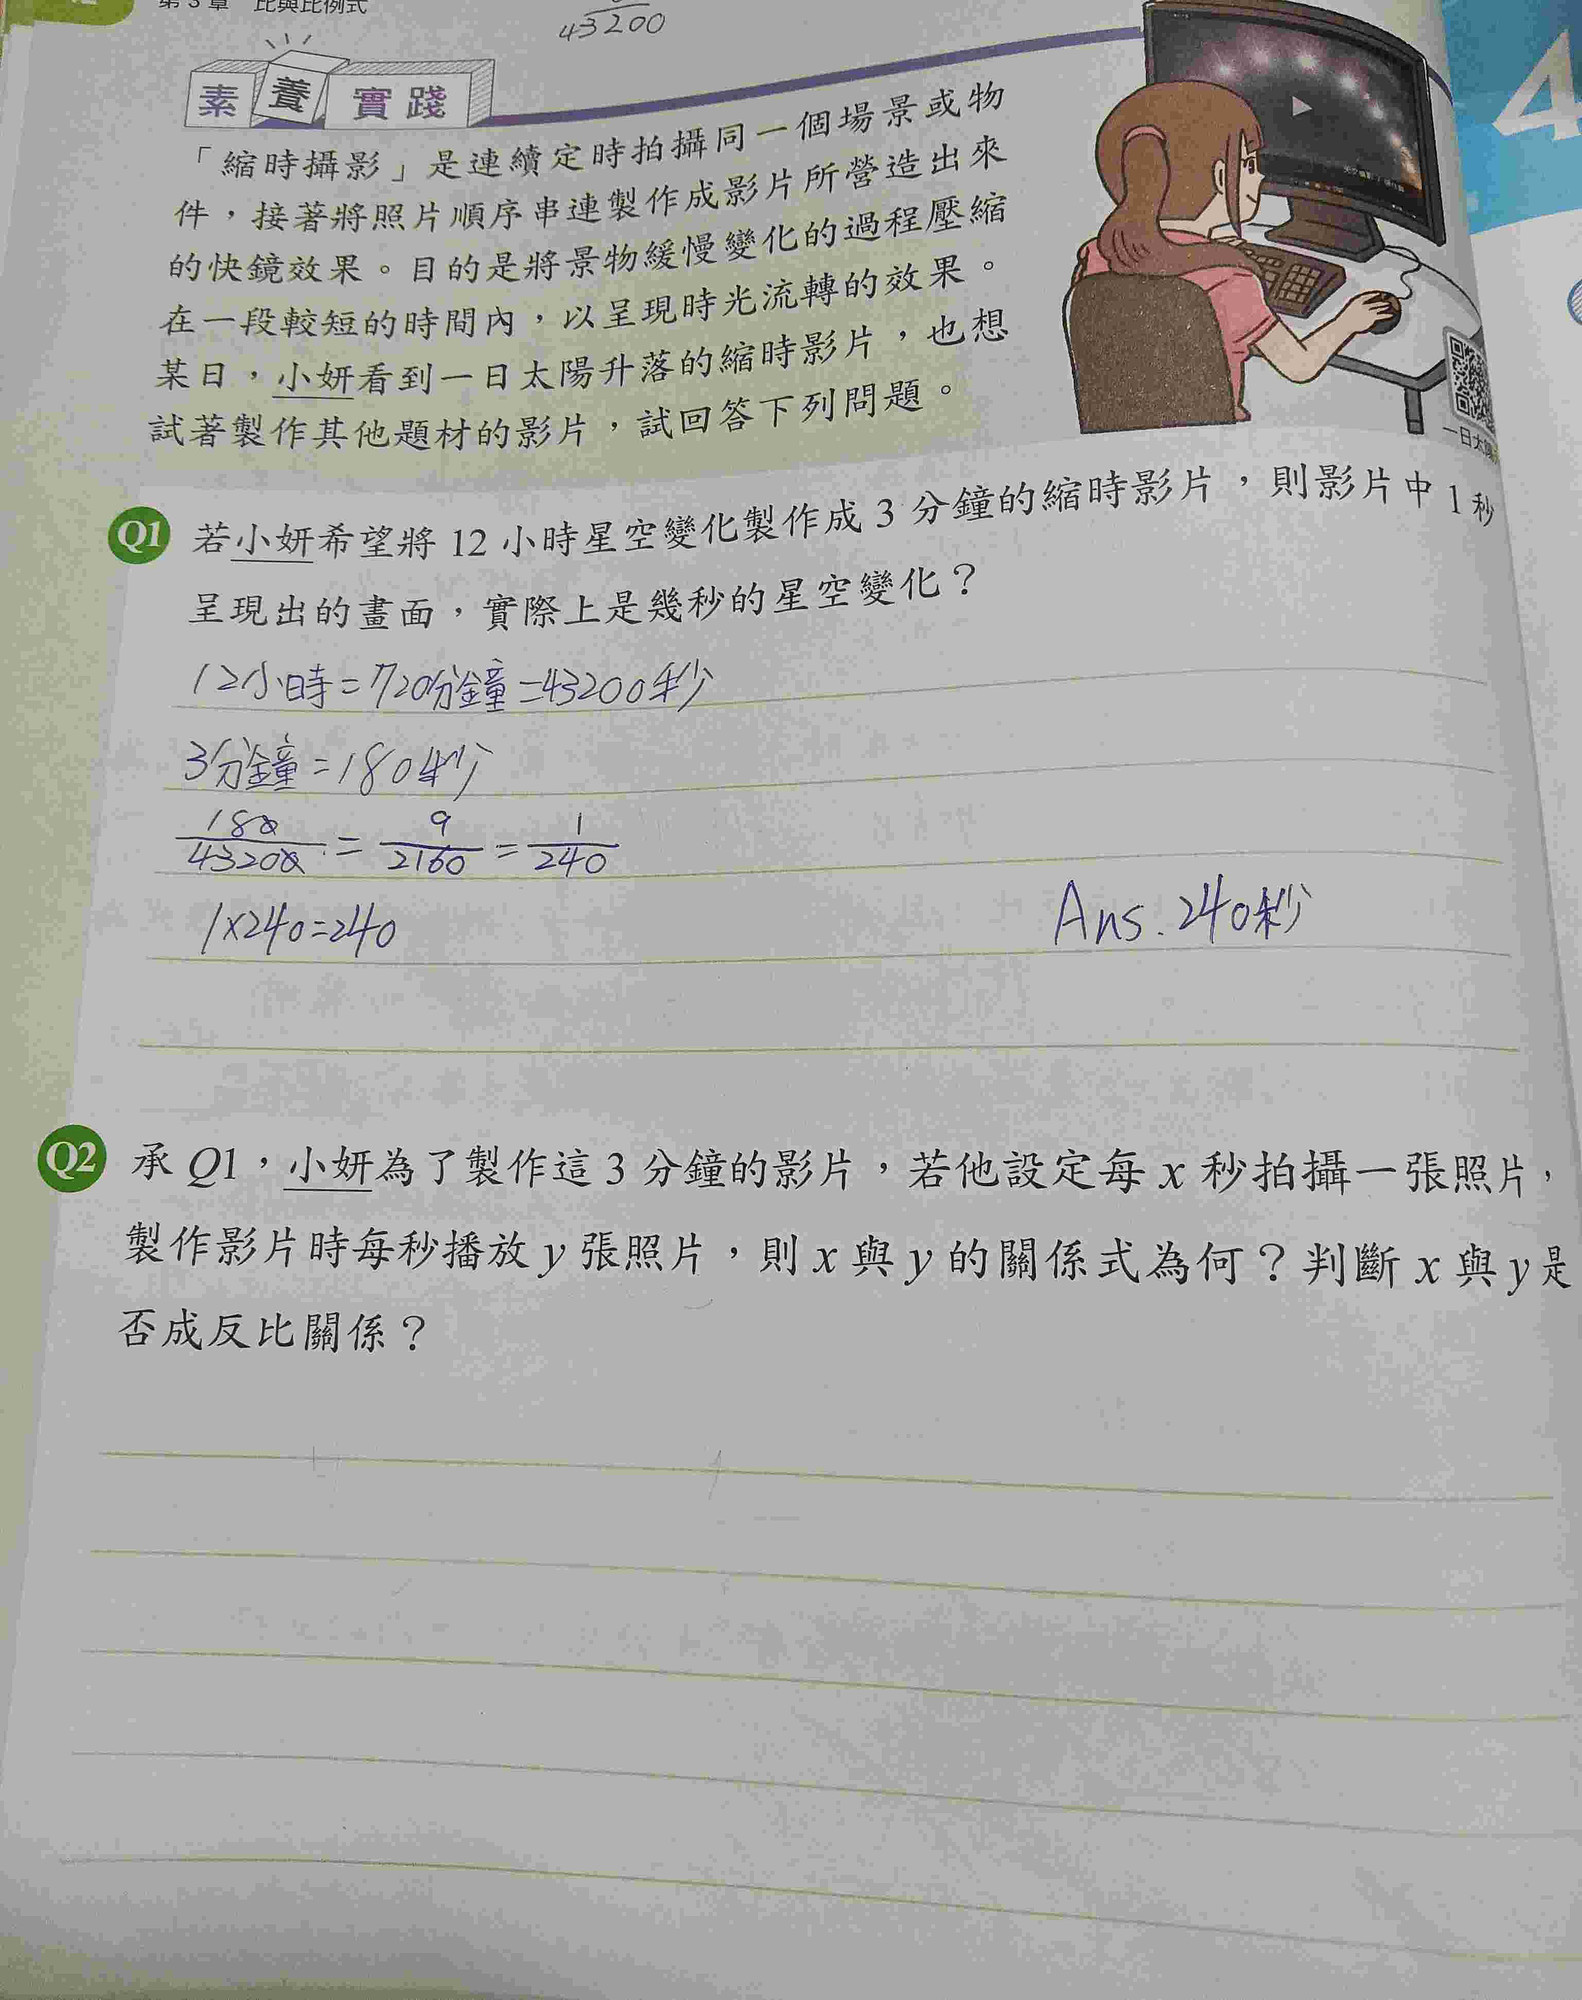 第3章 比與比例式
43200
素養實踐
「縮時攝影」是連續定時拍攝同一個場景或物
件，接著將照片順序串連製作成影片所營造出來
的快鏡效果。目的是將景物緩慢變化的過程壓縮
在一段較短的時間內，以呈現時光流轉的效果。
某日，小妍看到一日太陽升落的縮時影片，也想
試著製作其他題材的影片，試回答下列問題。
一日太陽
4
Q1 若小妍希望將 12 小時星空變化製作成 3 分鐘的縮時影片，則影片中 1 秒
呈現出的畫面，實際上是幾秒的星空變化？
12小時=720分鐘=43200秒
3分鐘=180秒
180/43200=9/2160=1/240
1×240=240
Ans.240秒
Q2 承 Q1，小妍為了製作這 3 分鐘的影片，若他設定每 x 秒拍攝一張照片，
製作影片時每秒播放 y 張照片，則 x 與 y 的關係式為何？判斷 x 與 y 是
否成反比關係？